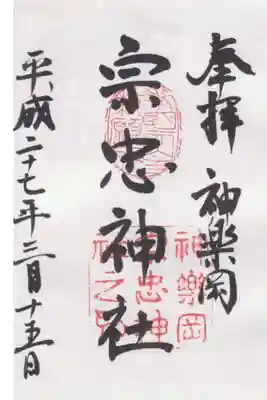 奉拝 神樂岡
宗忠神社
平成二十七年三月十五日
神樂岡
宗忠神
社之印